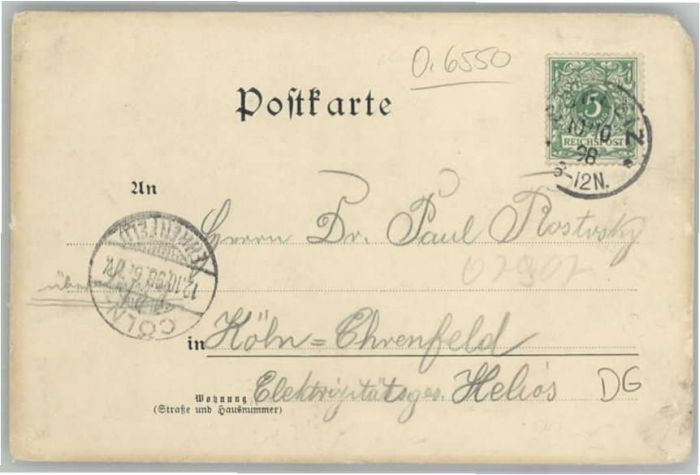 O. 6550
Postkarte
5
REICHSPOST
10.10
98
8-12N.
An
Herrn Dr. Paul Rostosky
07907
EHRENFELD
12.10.98
CÖLN
über
in Köln=Ehrenfeld
Wohnung
(Straße und Hausnummer)
Elektrizitätsges. Helios
DG